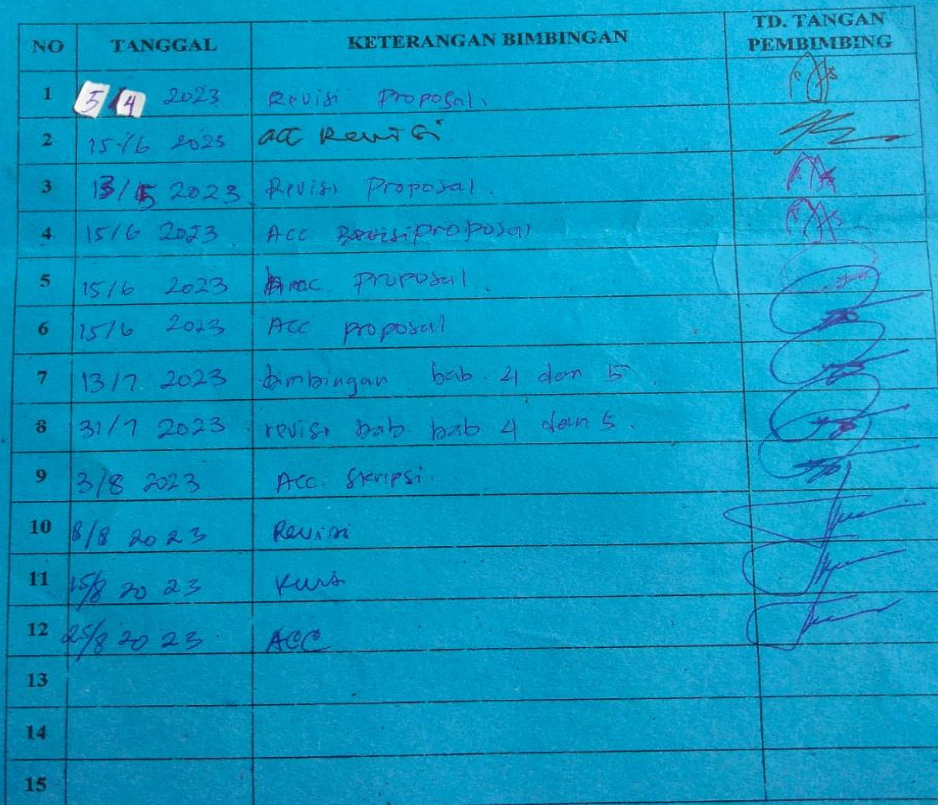 NO TANGGAL KETERANGAN BIMBINGAN TD. TANGAN PEMBIMBING
1 5/4 2023 Revisi Proposal.
2 15/6 2023 acc Revisi
3 13/5 2023 Revisi Proposal.
4 15/6 2023 Acc Revisi proposal
5 15/6 2023 Proposal.
6 15/6 2023 Acc proposal
7 13/7. 2023 bimbingan bab. 4 dan 5.
8 31/7 2023 revisi bab bab 4 dan 5.
9 3/8 2023 Acc. Skripsi.
10 8/8 2023 Revisi
11 15/8 2023
12 25/8 2023 ACC
13
14
15